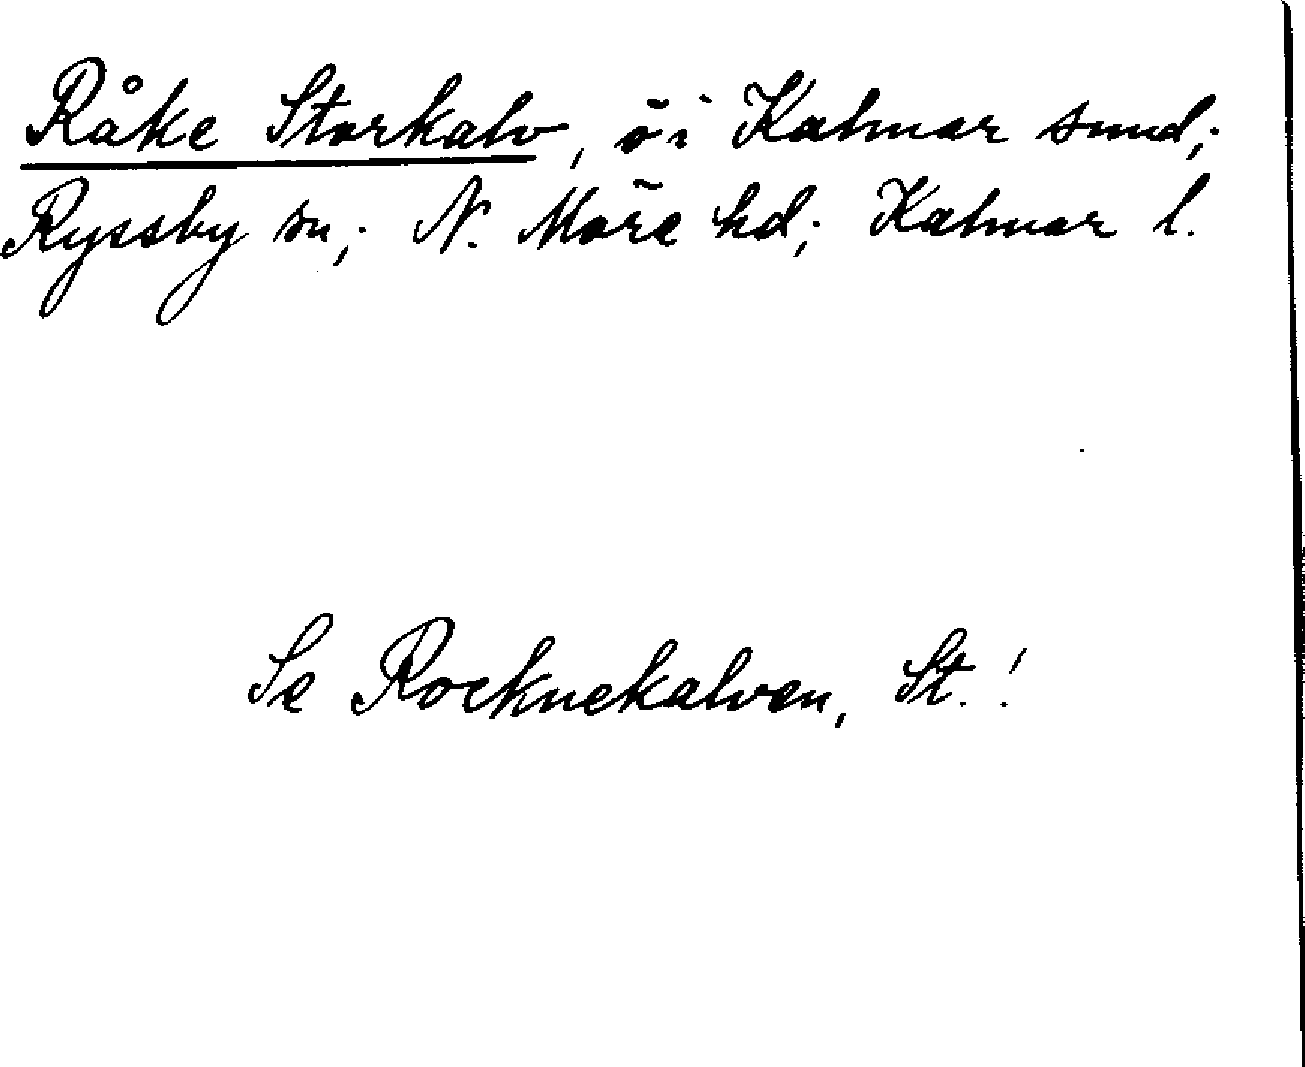 Råke Storkalv, ö i Kalmar sund;
Ryssby sn; N. Möre hd; Kalmar l.
Se Rocknekalven, St.!